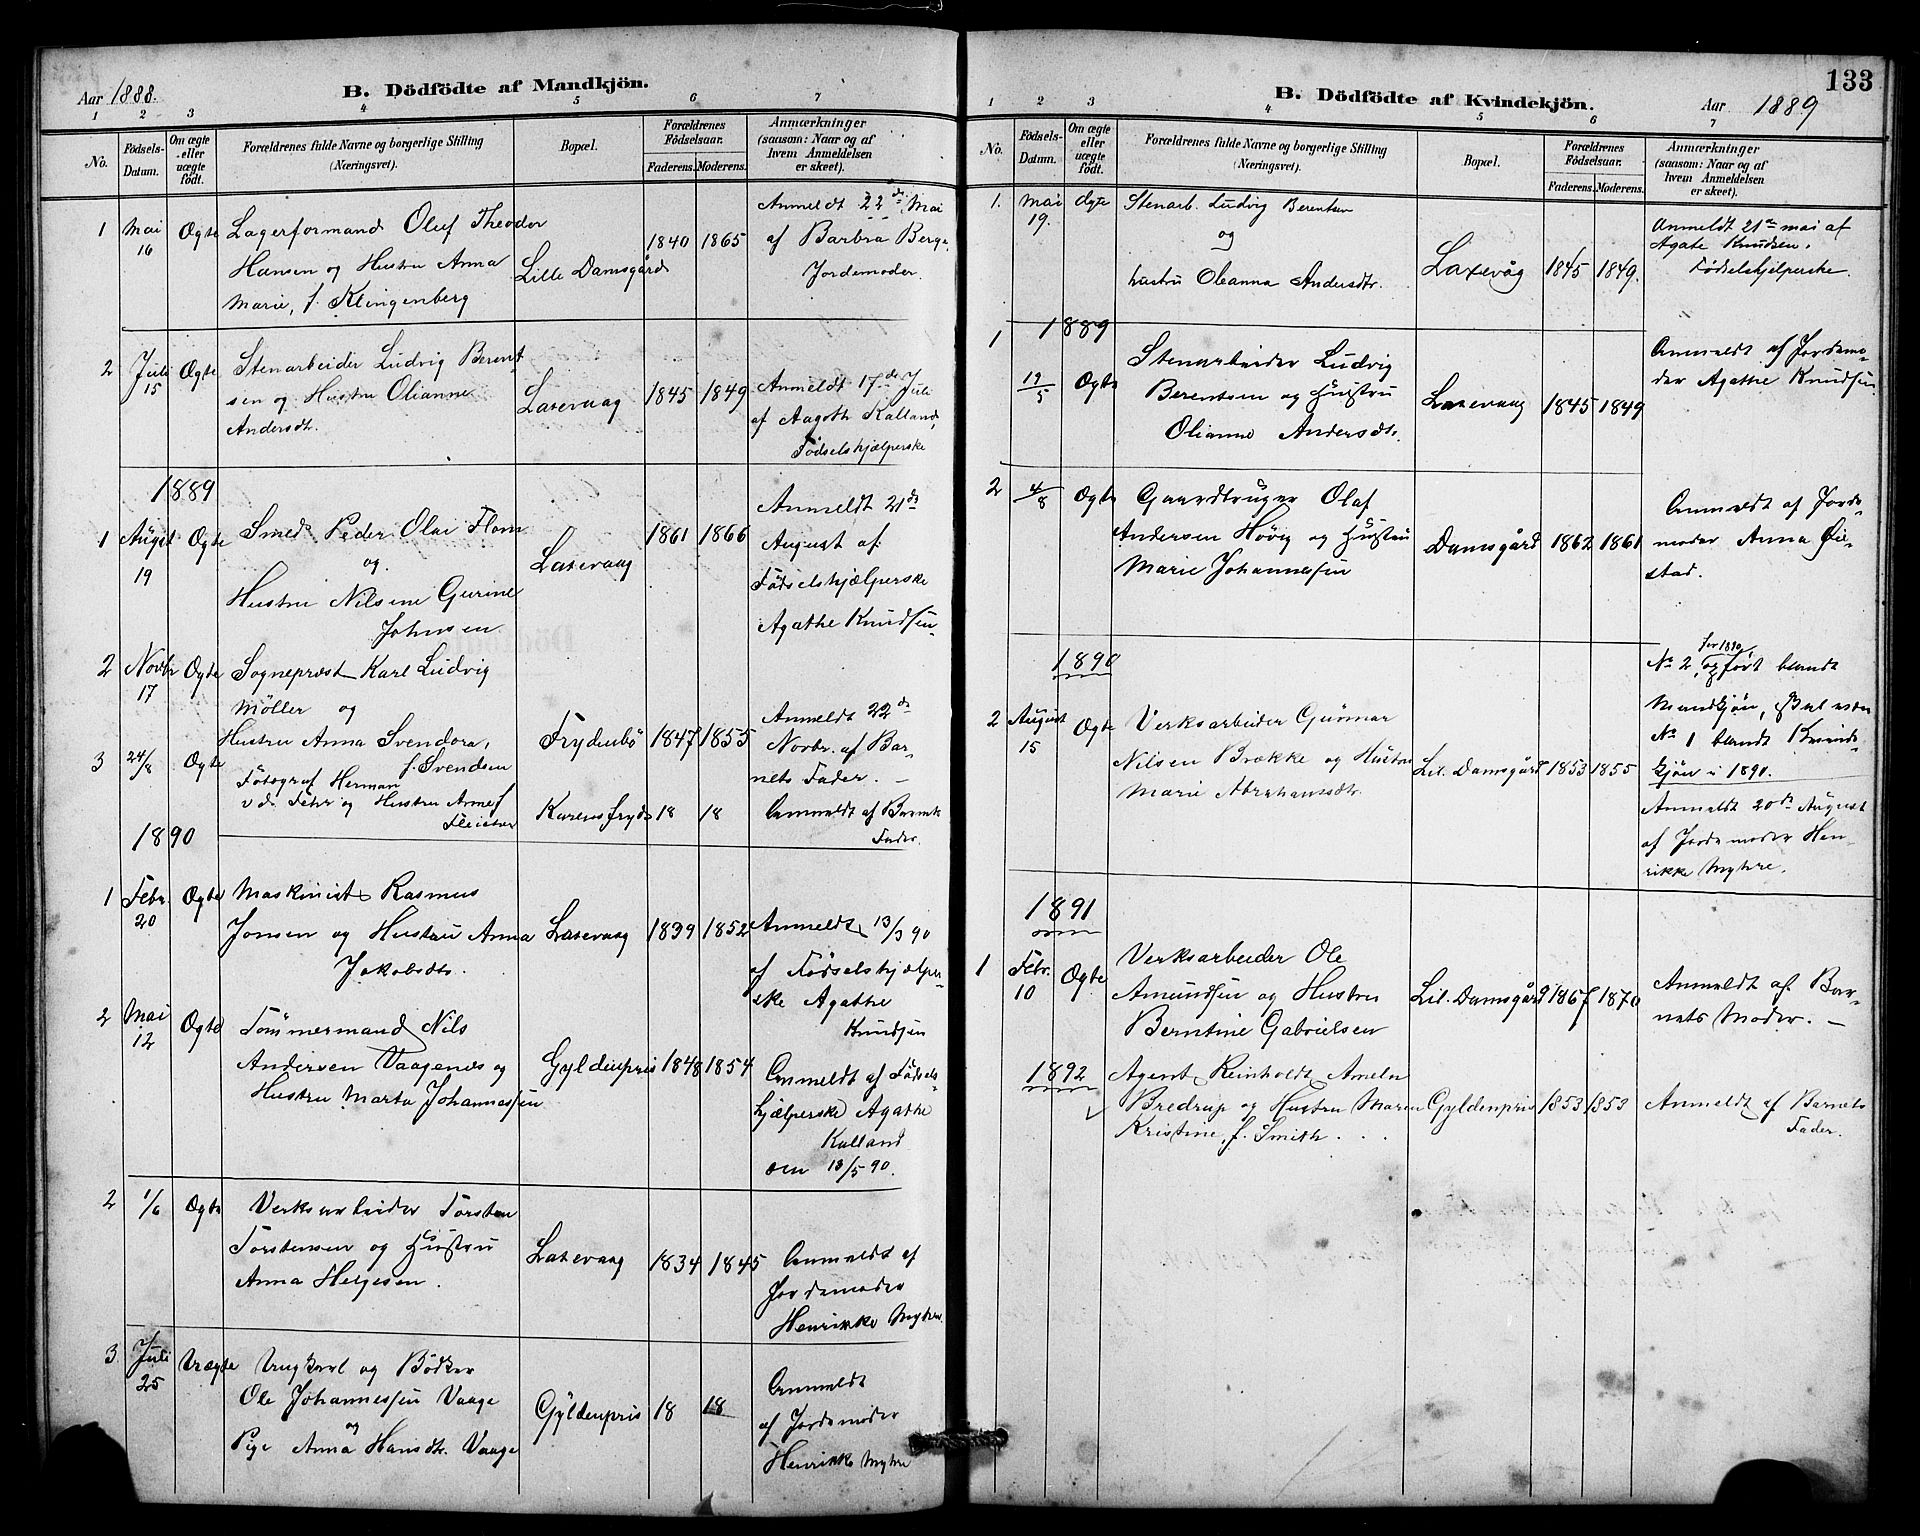 Aar 1888.
B. Dödfödte af Mandkjön.
1 2 3 4 5 6 7
No.
Födsels-Datum.
Om ægte eller uægte födt.
Forældrenes fulde Navne og borgerlige Stilling (Næringsvei).
Bopæl.
Forældrenes Födselsaar.
Faderens. Moderens.
Anmærkninger (saasom: Naar og af hvem Anmeldelsen er skeet).
1 Mai 16 Ægte
Lagerformand Oluf Theodor
Hansen og Hustru Anna
Marie, f. Klingenberg
Lille Damsgård
1840 1865
Anmeldt 22de Mai
af Barbra Berge,
Jordemoder.
2 Juli 15 Ægte
Stenarbeider Ludvig Berent
sen og Hustru Olianne
Andersdt.
Laxevaag
1845 1849
Anmeldt 17de Juli
af Aagoth Kalland,
Fødselshjælperske
1889
1 August 19 Ægte
Smed Peder Olai Flom
og
Hustru Nilsine Gurine
Johnsen
Laxevaag
1861 1866
Anmeldt 21de
August af
Fødselshjælperske
Agathe Knudsen.
2 Novbr 17 Ægte
Sognepræst Karl Ludvig
Möller og
Hustru Anna Svendora,
f. Svendsen
Frydenbö
1847 1855
Anmeldt 22de
Novbr. af Bar-
nets Fader. —
3 24/8 Ægte
Fotograf Herman
v. d. Fehr og Hustru Anne f
Fleischer
Karensfryd
18 18
Anmeldt af Barnets
Fader.
1890
1 Febr. 20 Ægte
Maskinist Rasmus
Jonsen og Hustru Anna
Jakobsdt.
Laxevaag
1839 1852
Anmeldt 13/3 90
af Fødselshjælper-
ske Agathe
Knudsen
2 Mai 12 Ægte
Tömmermand Nils
Andersen Vaagenes og
Hustru Marta Johannessen
Gyldenpris
1848 1854
Anmeldt af Fødsels-
hjælperske Agathe
Kalland
den 13/5 90.
2 1/6 Ægte
Verksarbeider Torsten
Torstensen og Hustru
Anna Helgesen.
Laxevaag
1834 1845
Anmeldt af
Jordemoder
Henrikke Myhre
3. Juli 25 Uægte
Ungkarl og Bödker
Ole Johannessen Vaage
og
Pige Anna Hansdtr. Vaage
Gyldenpris
18 18
Anmeldt
af Jordemoder
Henrikke Myhre
133
B. Dödfödte af Kvindekjön.
Aar 1889
1 2 3 4 5 6 7
No.
Födsels-Datum.
Om ægte eller uægte födt.
Forældrenes fulde Navne og borgerlige Stilling (Næringsvei).
Bopæl.
Forældrenes Födselsaar.
Faderens. Moderens.
Anmærkninger (saasom: Naar og af hvem Anmeldelsen er skeet).
1. Mai 19. Ægte
Stenarb. Ludvig Berentsen
og
hustru Oleanna Andersdtr.
Laxevåg
1845 1849.
Anmeldt 21de mai af
Agate Knudsen.
Fødselshjelperske.
1889
1 19/5 Ægte
Stenarbeider Ludvig
Berentsen og Hustru
Olianne Andersdtr.
Laxevaag
1845 1849
Anmeldt af Jordemo-
der Agathe Knudsen
2 4/8 Ægte
Gaardbruger Olaf
Andersen Høvig og Hustru
Marie Johannessen
Damsgård
1862 1861
Anmeldt af Jorde-
moder Anna
stad.
1890
2 August 15 Ægte
Verksarbeider Gunnar
Nilsen Brække og Hustru
Marie Abrahamsdtr.
Lil. Damsgård
1853 1855
for 1890,
No 2, opført blandt
Mandkjön,
No 1 blandt Kvinde-
kjön i 1890.
Anmeldt 20de August
af Jordemoder Hen-
rikke Myhre.
1891
1 Febr. 10 Ægte
Verksarbeider Ole
Amundsen og Hustru
Berntine Gabrielsen
Lil. Damsgård
1867 1870
Anmeldt af Bar-
nets Moder. —
1892
Agent Reinholdt Ameln
Bredrup og Hustru Maren
Kristine, f. Smith. . .
Gyldenpris
1853 1853
Anmeldt af Barnets
Fader.